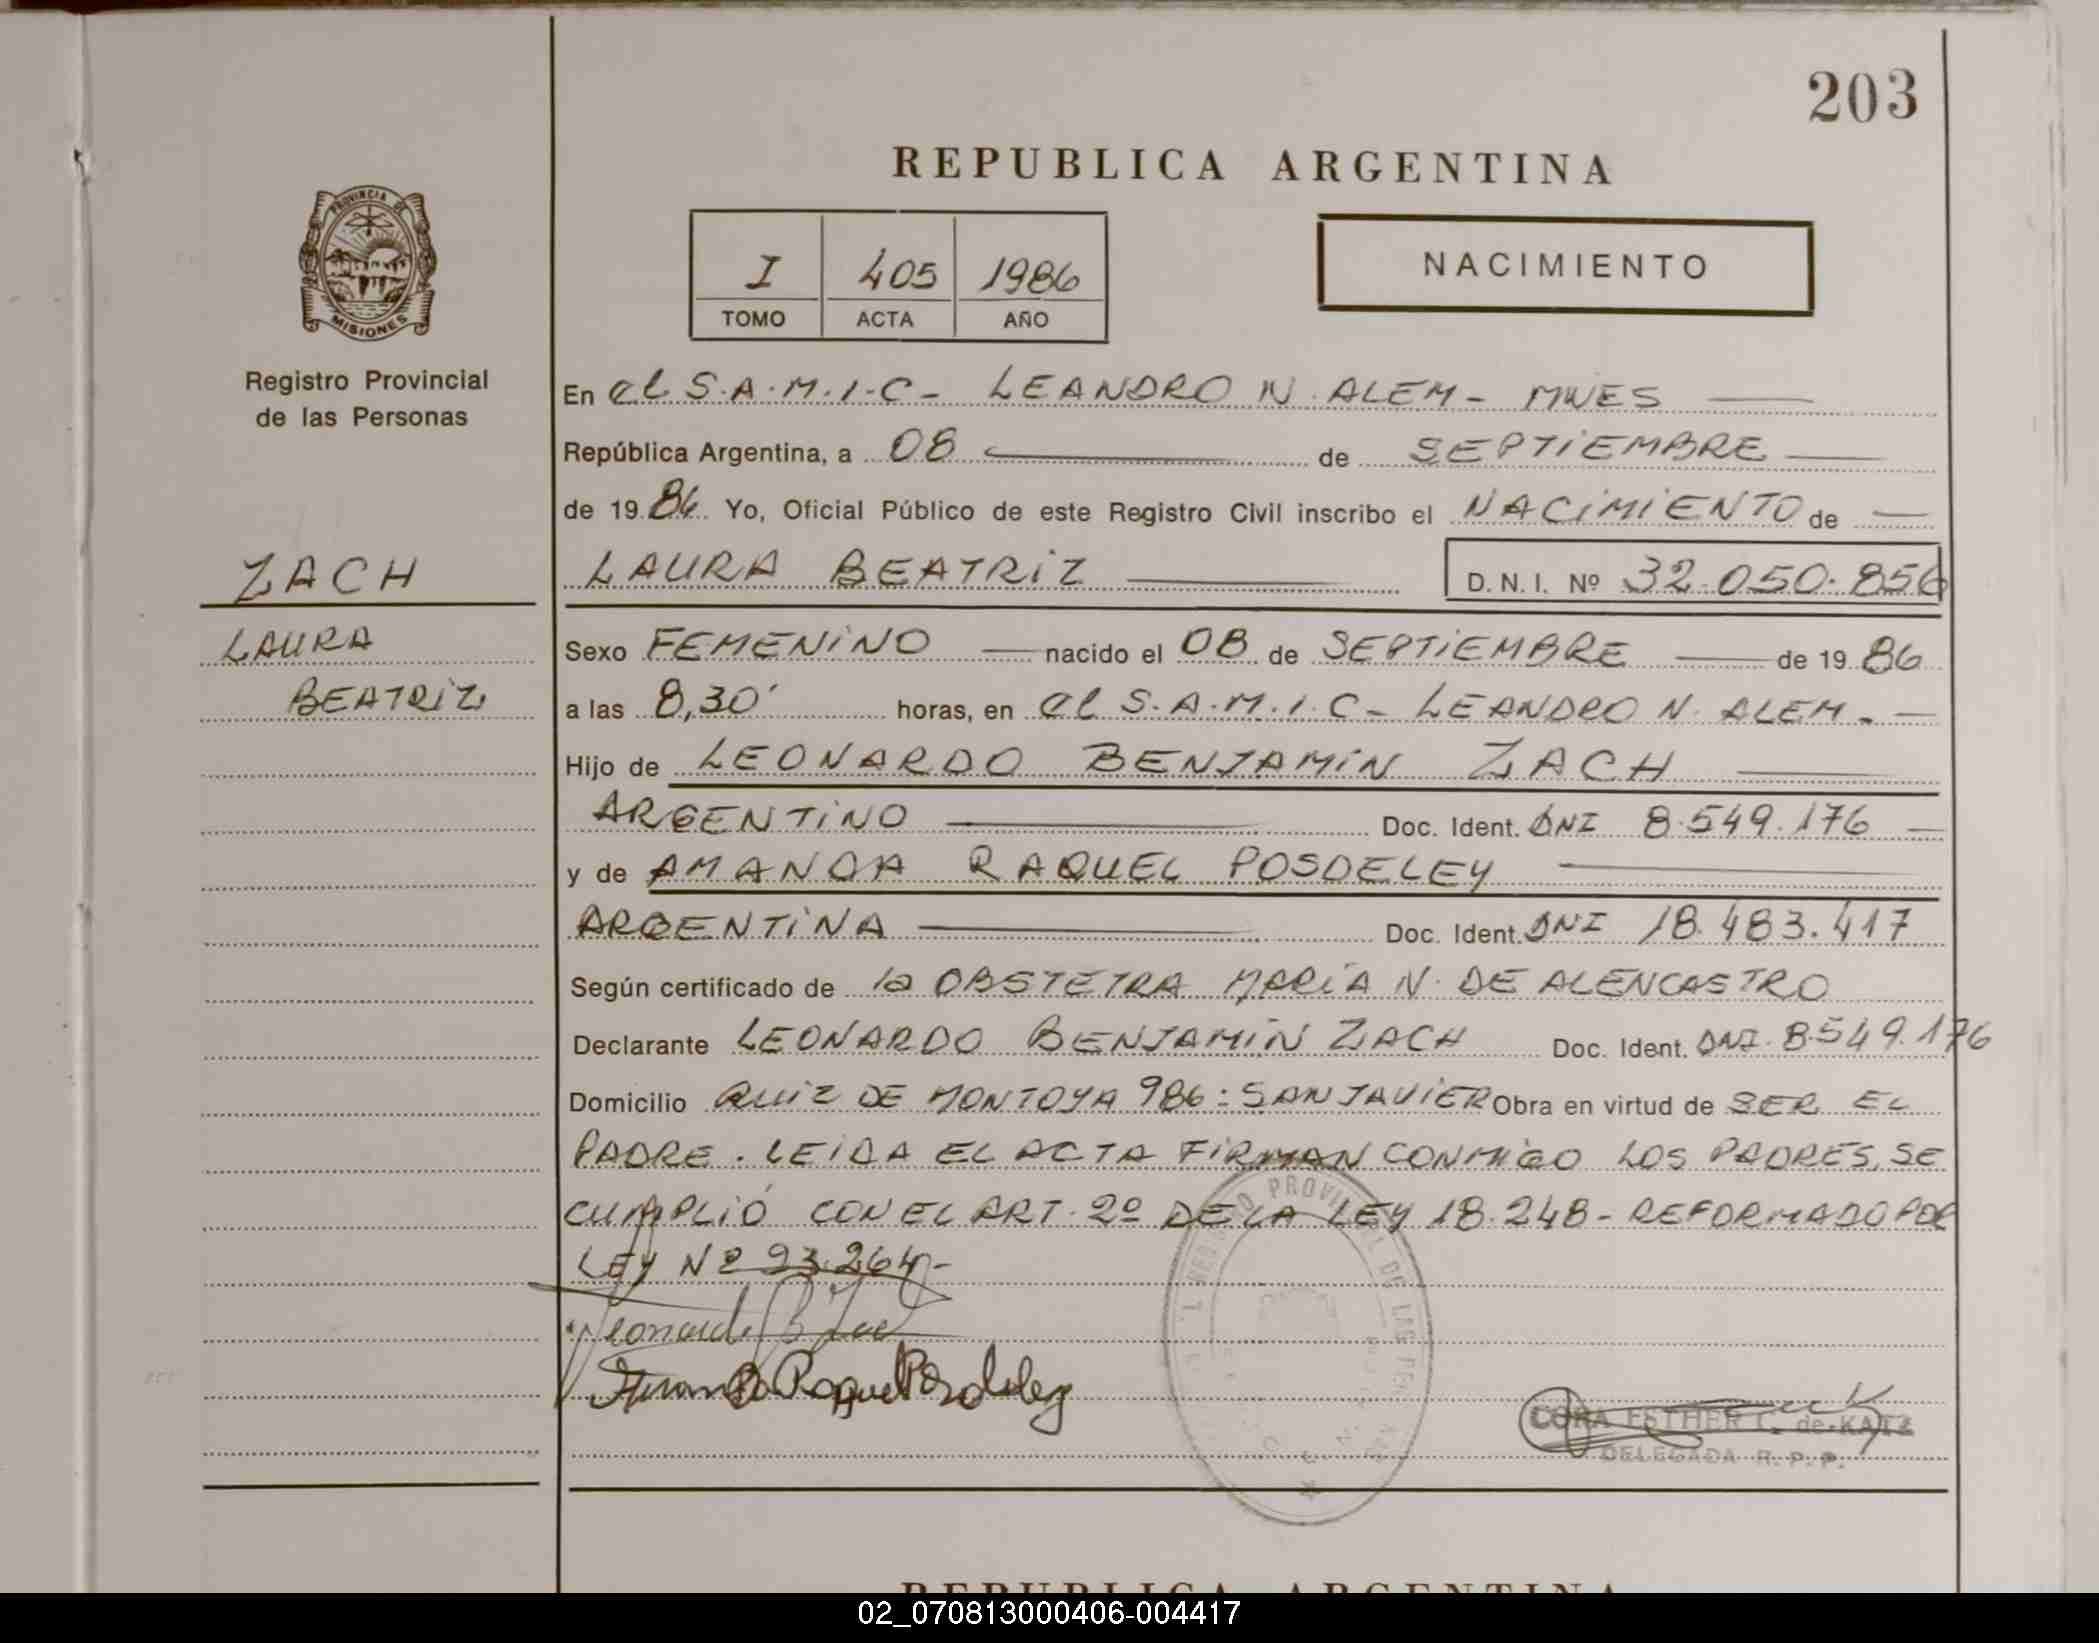 203
REPUBLICA ARGENTINA
PROVINCIA DE
MISIONES
I 405 1986
TOMO ACTA AÑO
NACIMIENTO
Registro Provincial
de las Personas
En el S.A.M.I.C- LEANDRO N. ALEM- MNES
República Argentina, a 08 de SEPTIEMBRE
de 1986 Yo, Oficial Público de este Registro Civil inscribo el NACIMIENTO de
ZACH
LAURA BEATRIZ D. N. I. Nº 32.050.856
LAURA
BEATRIZ
Sexo FEMENINO nacido el 08 de SEPTIEMBRE de 19 86
a las 8,30' horas, en el S.A.M.I.C- LEANDRO N. ALEM.-
Hijo de LEONARDO BENJAMIN ZACH
ARGENTINO Doc. Ident. DNI 8.549.176
y de AMANDA RAQUEL POSDELEY
ARGENTINA Doc. Ident. DNI 18.483.417
Según certificado de la OBSTETRA MARÍA N. DE ALENCASTRO
Declarante LEONARDO BENJAMIN ZACH Doc. Ident. DNI. 8.549.176
Domicilio RUIZ DE MONTOYA 986: SAN JAVIER Obra en virtud de SER EL
PADRE. LEIDA EL ACTA FIRMAN CONMIGO LOS PADRES, SE
CUMPLIÓ CON EL ART. 2º DE LA LEY 18.248- REFORMADO POR
LEY Nº 23.264-
Leonardo B Zach
Amanda Raquel Posdeley
REGISTRO PROVINCIAL DE LAS
CORA ESTHER C. de KATZ
DELEGADA R. P. P.
REPUBLICA ARGENTINA
02_070813000406-004417